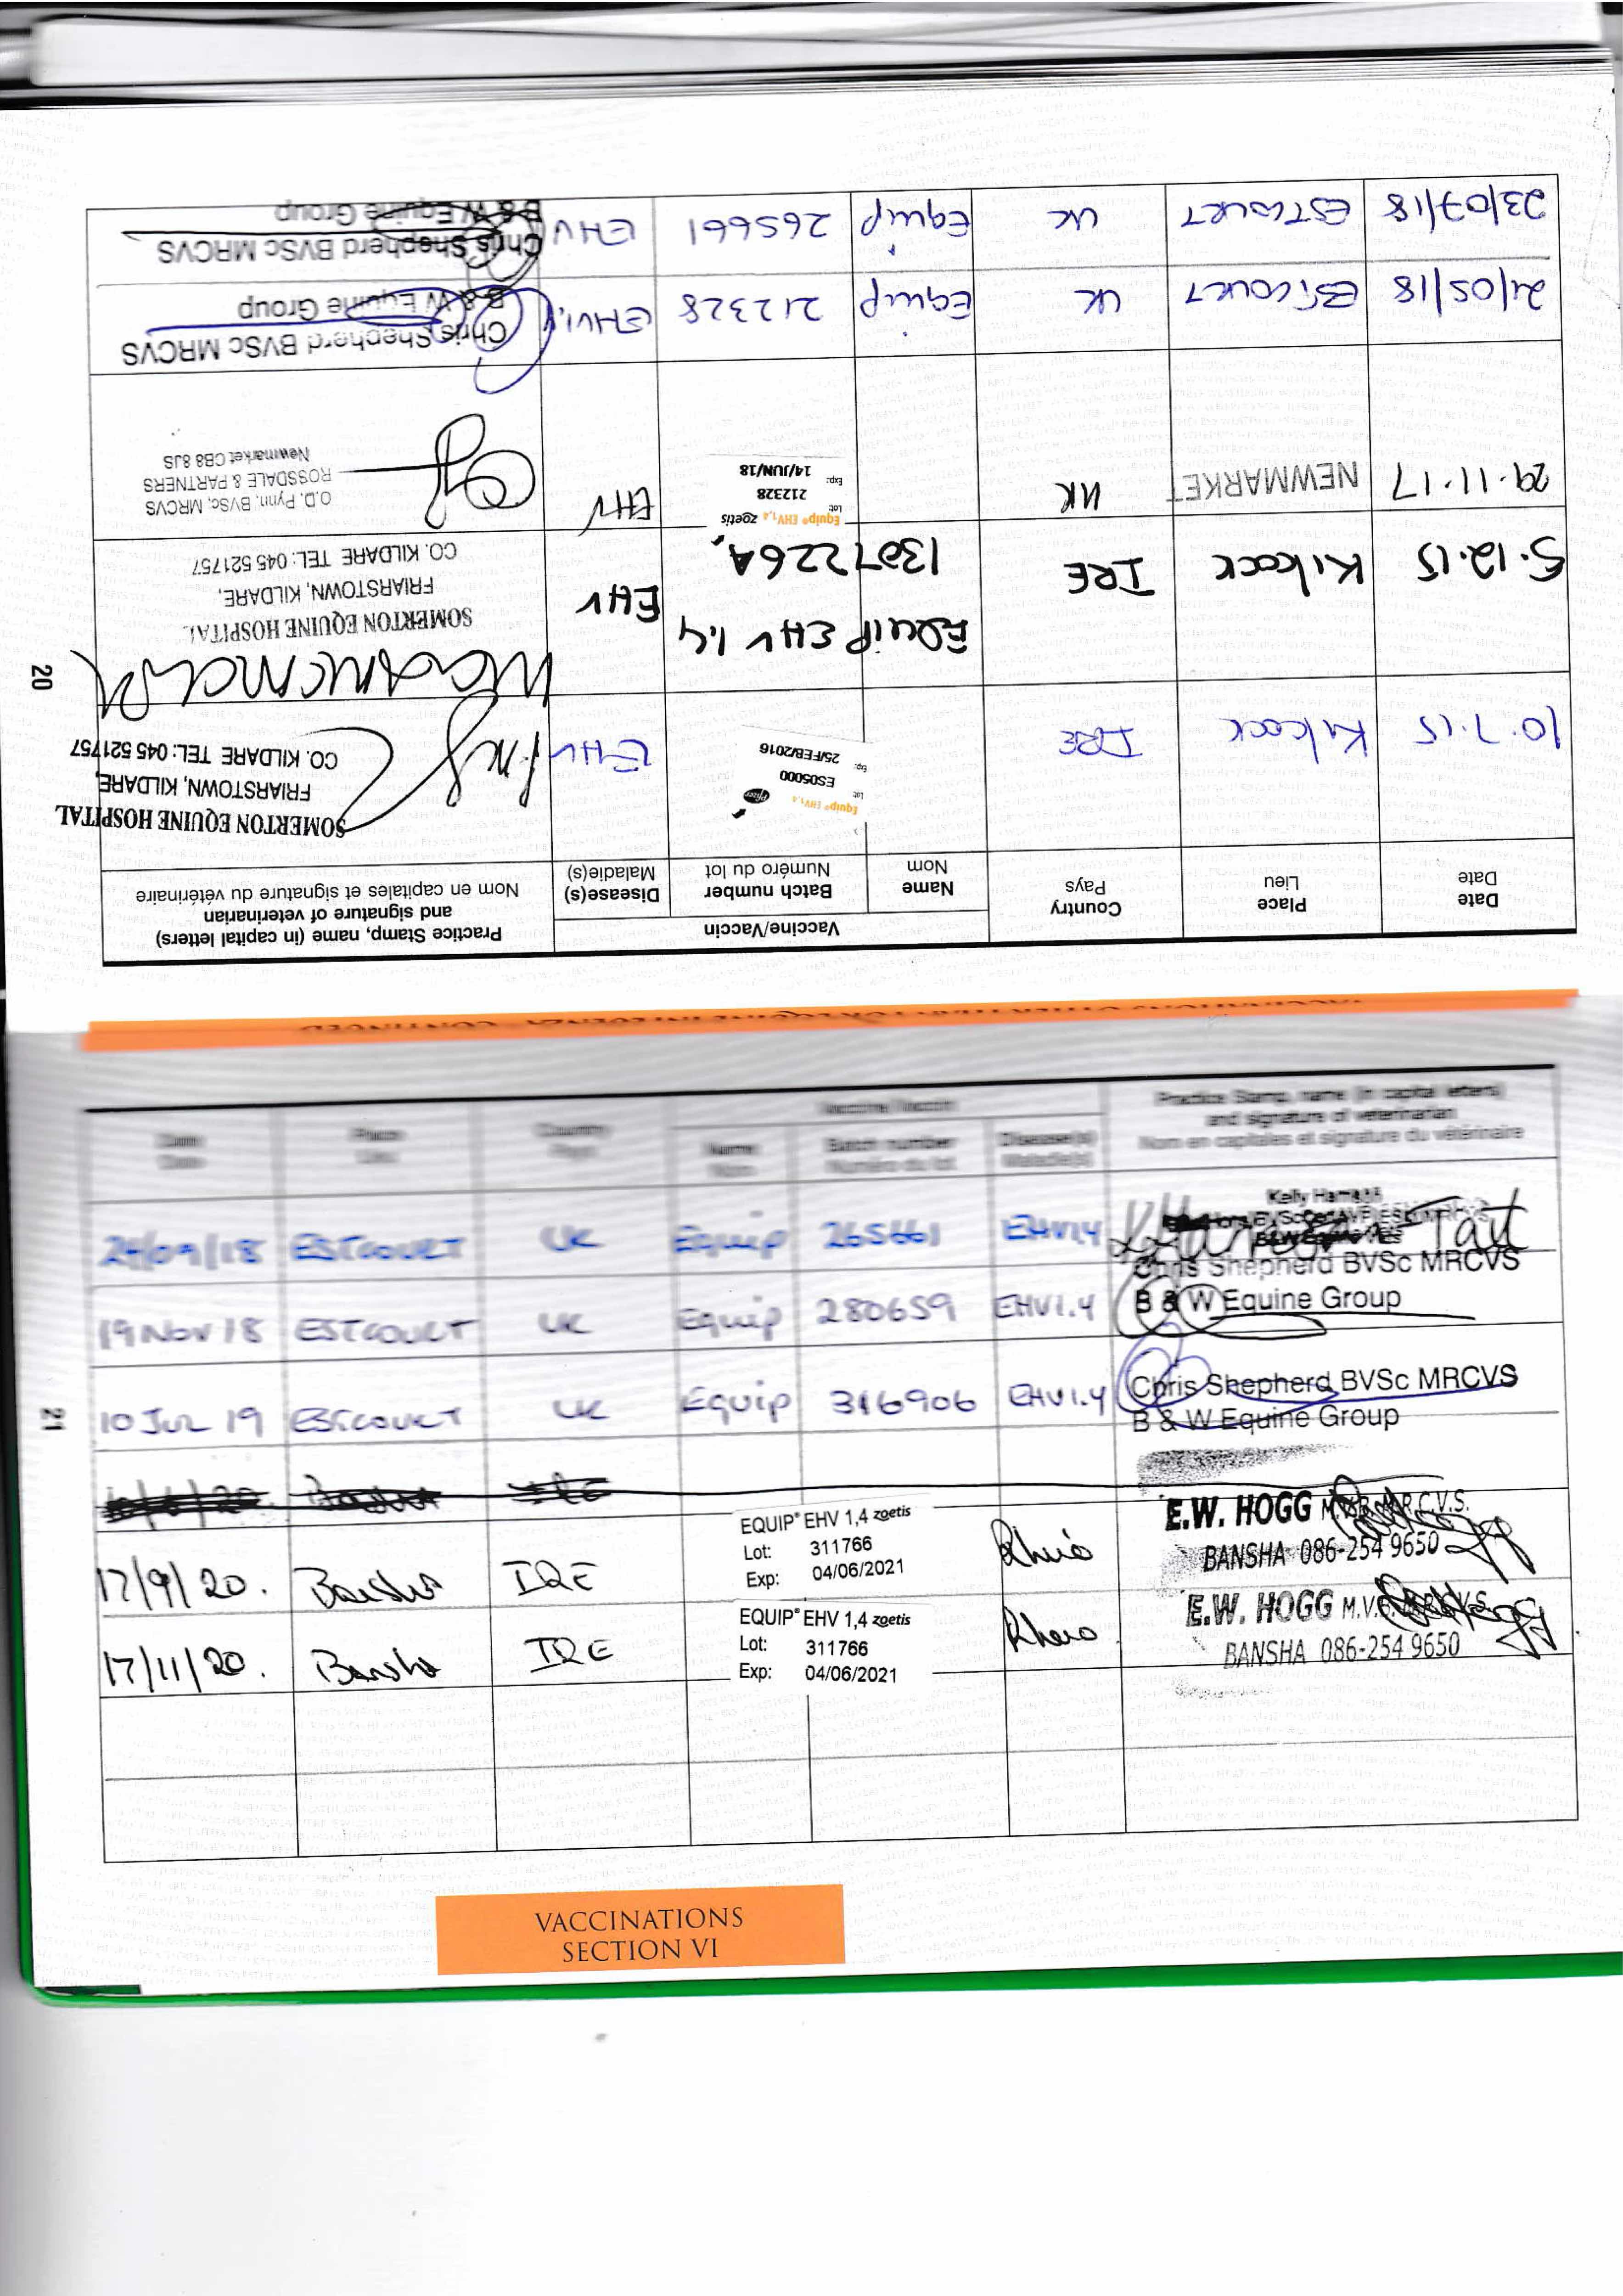 Date Place Country Vaccine/Vaccin Practice Stamp, name (in capital letters)
Date Lieu Pays Name Batch number Disease(s) and signature of veterinarian
Nom Numéro du lot Maladie(s) Nom en capitales et signature du vétérinaire
10.7.15 Kilcock IRE Equip® EHV1,4 Pfizer EHV SOMERTON EQUINE HOSPITAL
Lot: ES05000 FRIARSTOWN, KILDARE,
Exp: 25/FEB/2016 CO. KILDARE TEL: 045 521757
5.12.15 Kilcock IRE EQUIP EHV 1.4 EHV SOMERTON EQUINE HOSPITAL
1307226A FRIARSTOWN, KILDARE,
CO. KILDARE TEL: 045 521757
29.11.17 NEWMARKET UK Equip® EHV1,4 zoetis EHV O.D. Pynn, BVSc, MRCVS
Lot: 212328 ROSSDALE & PARTNERS
Exp: 14/JUN/18 Newmarket CB8 8JS
21/05/18 ESTCOURT UK Equip 212328 EHV1, Chris Shepherd BVSc MRCVS
B & W Equine Group
23/07/18 ESTCOURT UK Equip 265661 EHV Chris Shepherd BVSc MRCVS
B & W Equine Group
20
Date Place Country Vaccine/Vaccin Practice Stamp, name (in capital letters)
Date Lieu Pays Name Batch number Disease(s) and signature of veterinarian
Nom Numéro du lot Maladie(s) Nom en capitales et signature du vétérinaire
/18 ESTCOURT UK Equip 265661 EHV1,4 Kelly
19 Nov 18 ESTCOURT UK Equip 280659 EHV1.4 Chris Shepherd BVSc MRCVS
B & W Equine Group
10 JUL 19 ESTCOURT UK Equip 316906 EHV1.4 Chris Shepherd BVSc MRCVS
B & W Equine Group
17/9/20. Bansha IRE EQUIP® EHV 1,4 zoetis Rhino E.W. HOGG
Lot: 311766 BANSHA 086-254 9650
Exp: 04/06/2021
17/11/20. Bansha IRE EQUIP® EHV 1,4 zoetis Rhino E.W. HOGG
Lot: 311766 BANSHA 086-254 9650
Exp: 04/06/2021
21
VACCINATIONS
SECTION VI